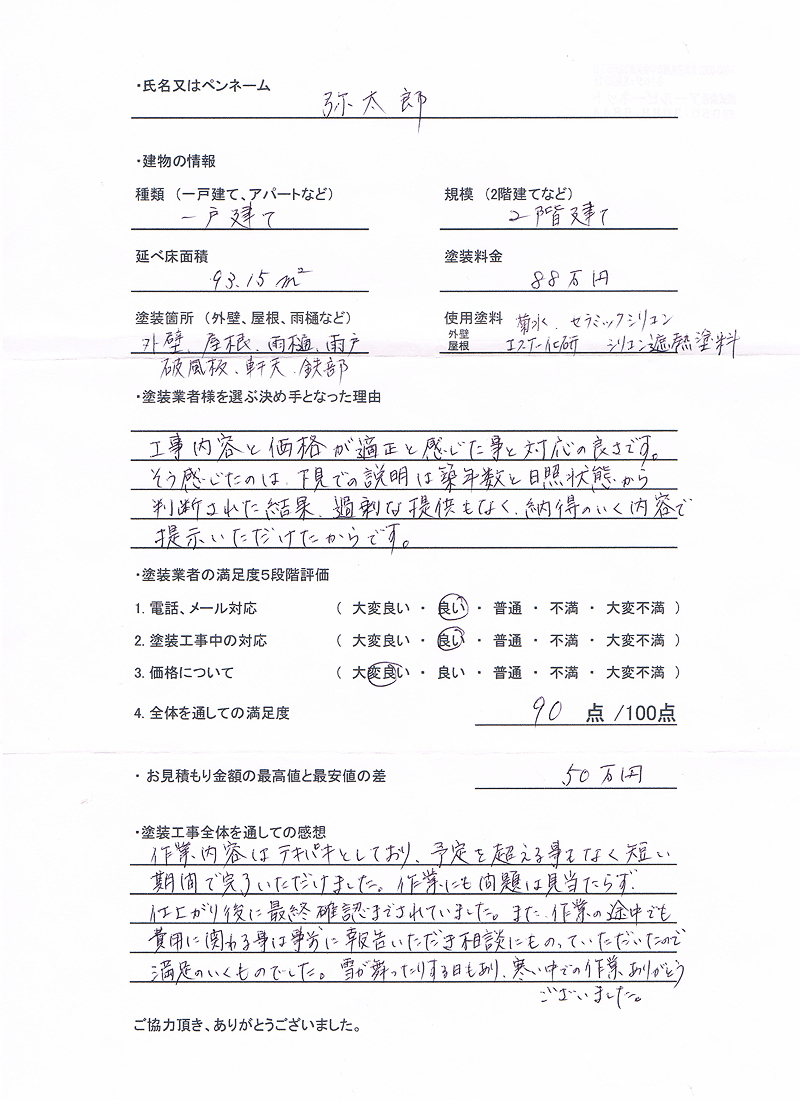 ・氏名又はペンネーム
弥太郎
・建物の情報
種類 （一戸建て、アパートなど） 規模 （2階建てなど）
一戸建て 2階建て
延べ床面積 塗装料金
93.15m² 88万円
塗装箇所 （外壁、屋根、雨樋など） 使用塗料 菊水、セラミックシリコン
外壁、屋根、雨樋、雨戸 外壁
屋根 エスケー化研 シリコン遮熱塗料
破風板、軒天、鉄部
・塗装業者様を選ぶ決め手となった理由
工事内容と価格が適正と感じた事と対応の良さです。
そう感じたのは、下見での説明は築年数と日照状態から
判断された結果、過剰な提供もなく、納得のいく内容で
提示いただけたからです。
・塗装業者の満足度5段階評価
1. 電話、メール対応 （ 大変良い ・ 良い ・ 普通 ・ 不満 ・ 大変不満 ）
2. 塗装工事中の対応 （ 大変良い ・ 良い ・ 普通 ・ 不満 ・ 大変不満 ）
3. 価格について （ 大変良い ・ 良い ・ 普通 ・ 不満 ・ 大変不満 ）
4. 全体を通しての満足度 90 点 /100点
・ お見積もり金額の最高値と最安値の差 50万円
・塗装工事全体を通しての感想
作業内容はテキパキとしており、予定を超える事もなく短い
期間で完了いただけました。作業にも問題は見当たらず
仕上がり後に最終確認までされていました。また、作業の途中でも
費用に関わる事は事前に報告いただき相談にものっていただいたので
満足のいくものでした。雪が舞ったりする日もあり、寒い中での作業ありがとう
ございました。
ご協力頂き、ありがとうございました。